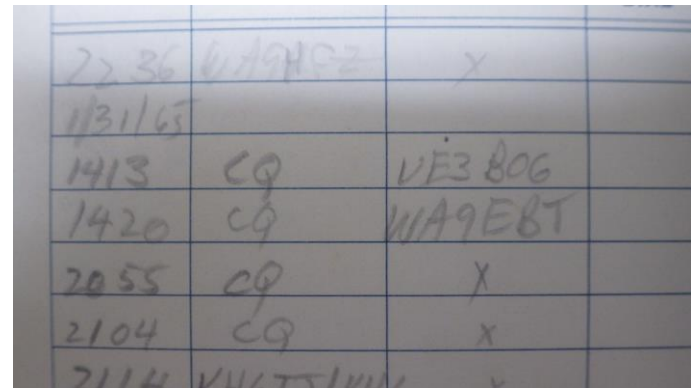 2236 X
1/31/65
1413 CQ VE3BOG
1420 CQ WA9EBT
2055 CQ X
2104 CQ X
2114